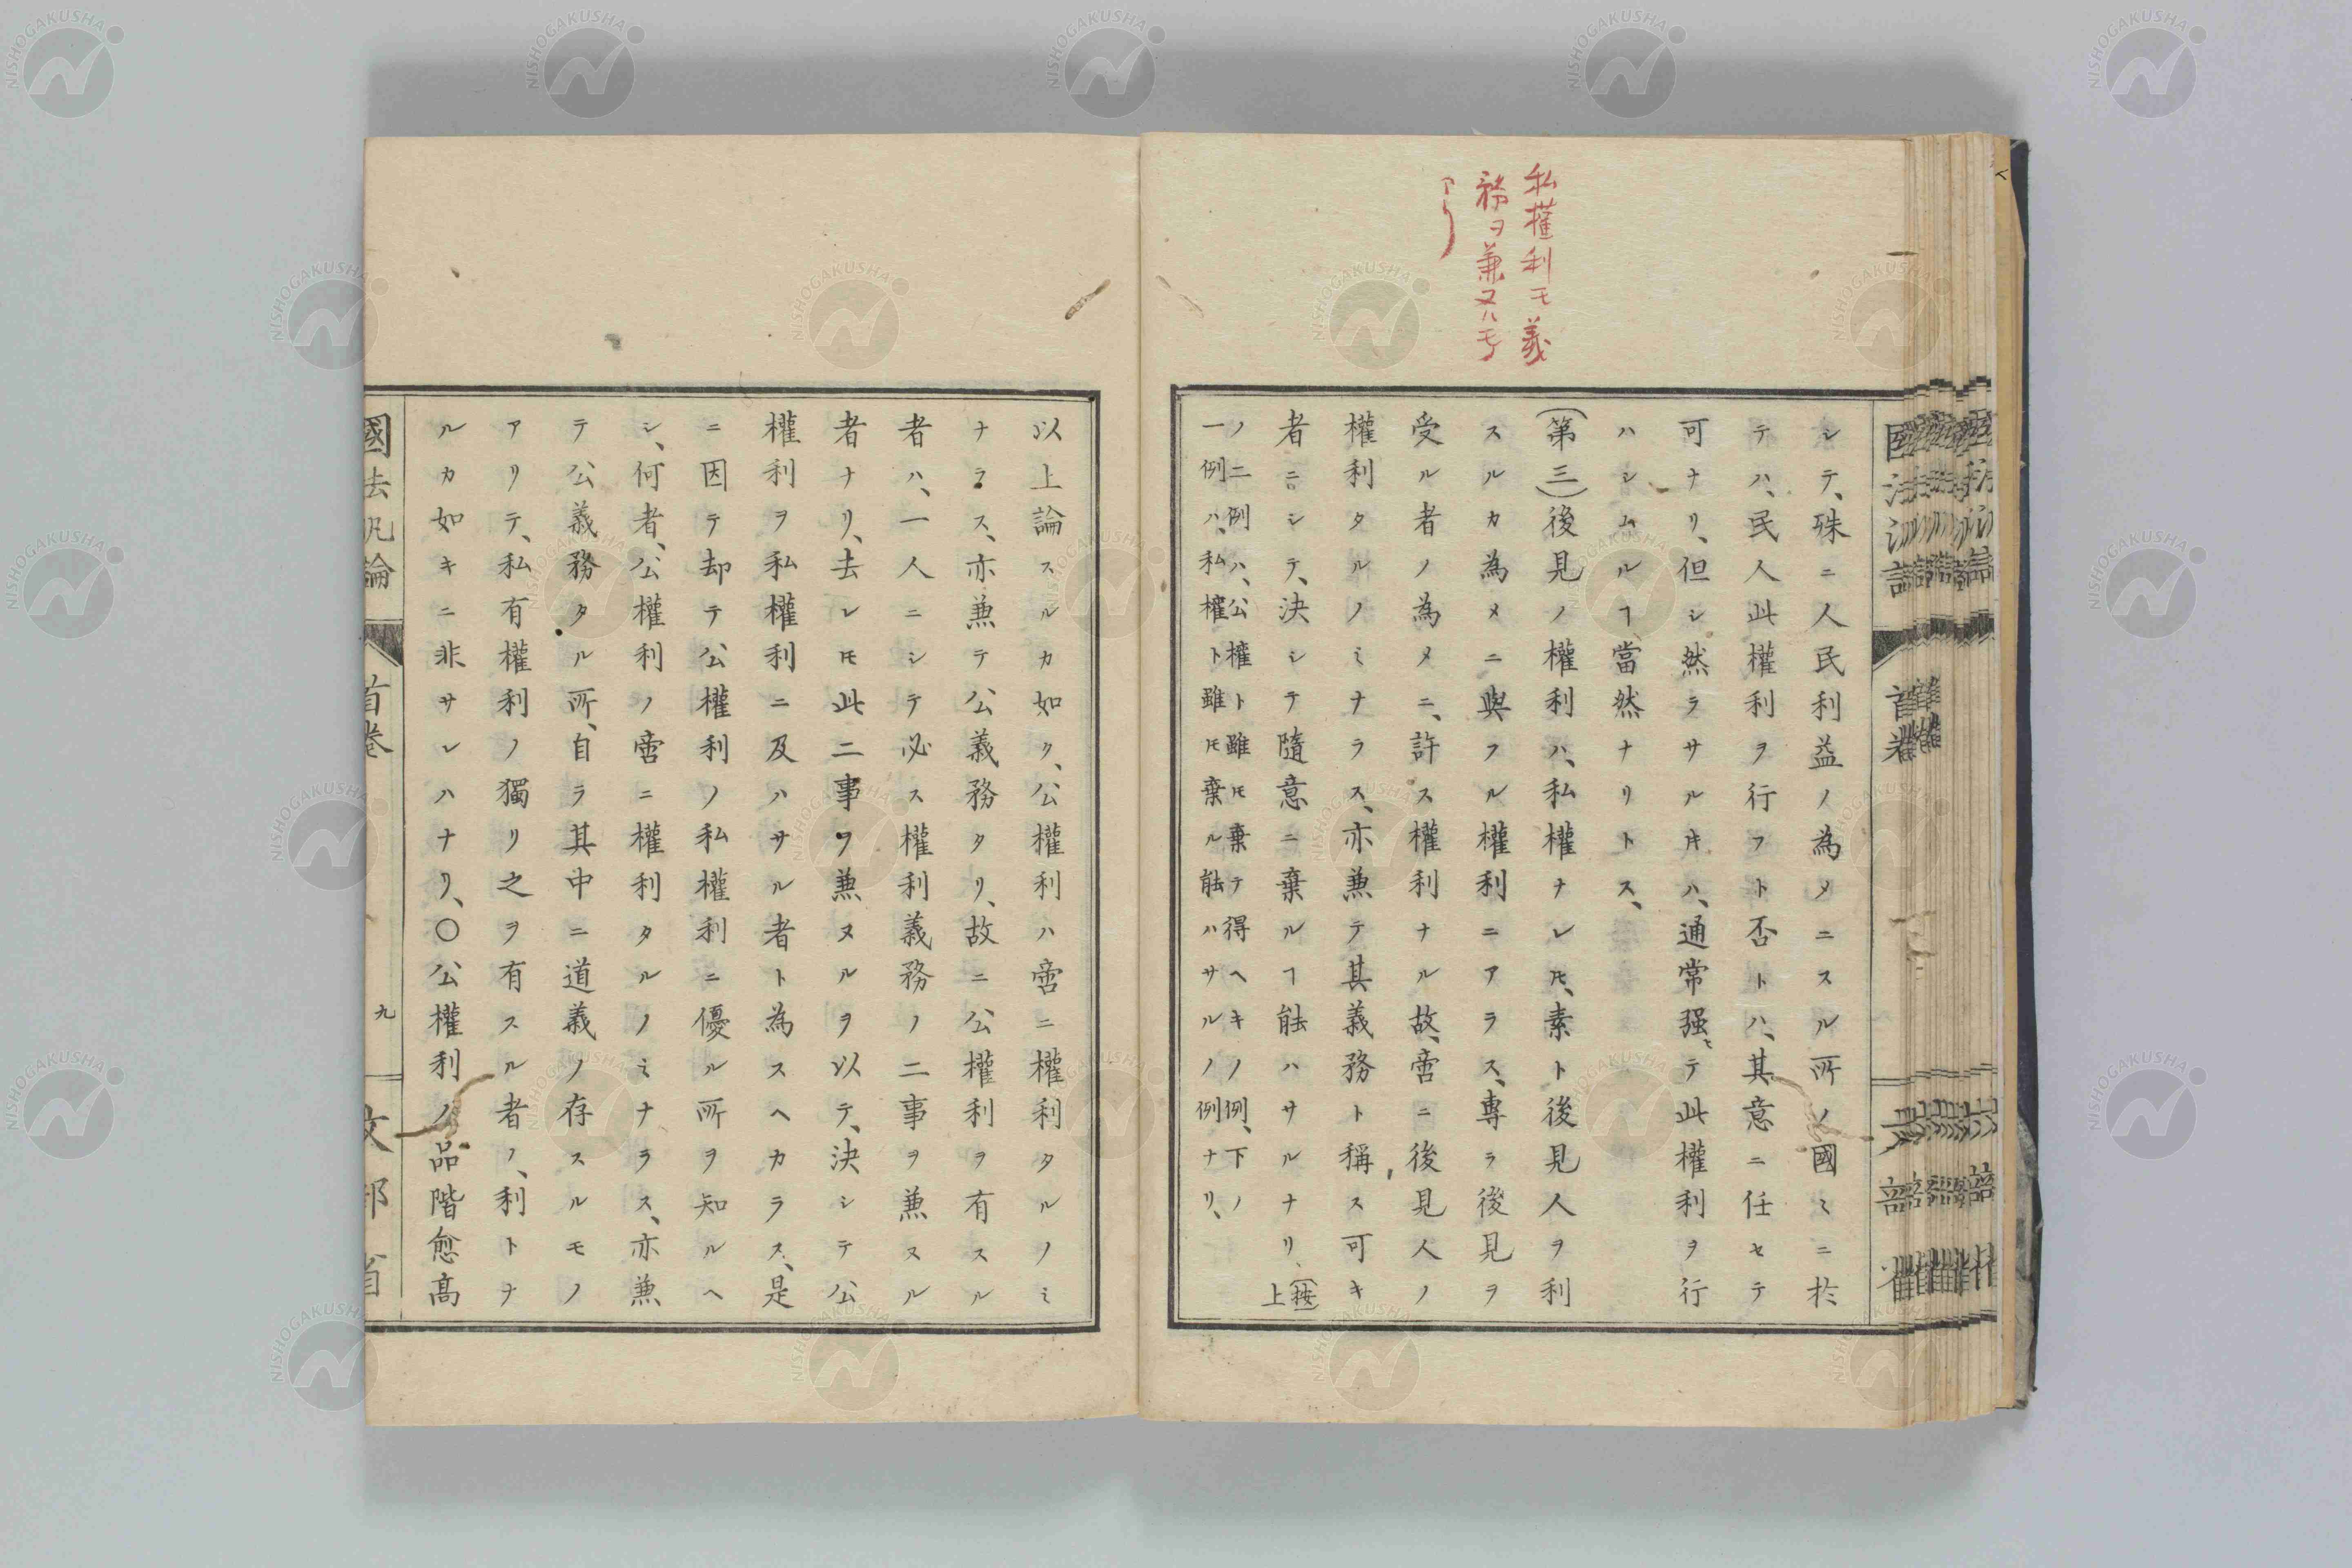 私權利モ義
務ヲ兼ヌルモノ
アリ
シテ、殊ニ人民利益ノ為メニスル所ノ國ミニ於
テハ、民人此權利ヲ行フト否トハ、其意ニ任セテ
可ナリ、但シ然ラサルキハ、通常强ヒテ此權利ヲ行
ハシムルヿ當然ナリトス、
(第三)後見ノ權利ハ、私權ナレ𪜈、素ト後見人ヲ利
スルカ為メニ與フル權利ニアラス、專ラ後見ヲ
受ル者ノ為メニ、許ス權利ナル故、啻ニ後見人ノ
權利タルノミナラス、亦兼テ其義務ト稱ス可キ
者ニシテ、決シテ隨意ニ棄ルヿ能ハサルナリ、(按)上
ノ二例ハ、公權ト雖𪜈棄テ得ヘキノ例、下ノ
一例ハ、私權ト雖𪜈棄ル能ハサルノ例ナリ、
國法汎論
首卷
文部省
以上論スルカ如ク、公權利ハ啻ニ權利タルノミ
ナラス、亦兼テ公義務タリ、故ニ公權利ヲ有スル
者ハ、一人ニシテ必ス權利義務ノ二事ヲ兼ヌル
者ナリ、去レ𪜈此二事ヲ兼ヌルヲ以テ、決シテ公
權利ヲ私權利ニ及ハサル者ト為スヘカラス、是
ニ因テ却テ公權利ノ私權利ニ優ル所ヲ知ルヘ
シ、何者、公權利ノ啻ニ權利タルノミナラス、亦兼
テ公義務タル所、自ラ其中ニ道義ノ存スルモノ
アリテ、私有權利ノ獨リ之ヲ有スル者ノ、利トナ
ルカ如キニ非サレハナリ、〇公權利ノ品階愈高
國法汎論
首卷
九
文部省